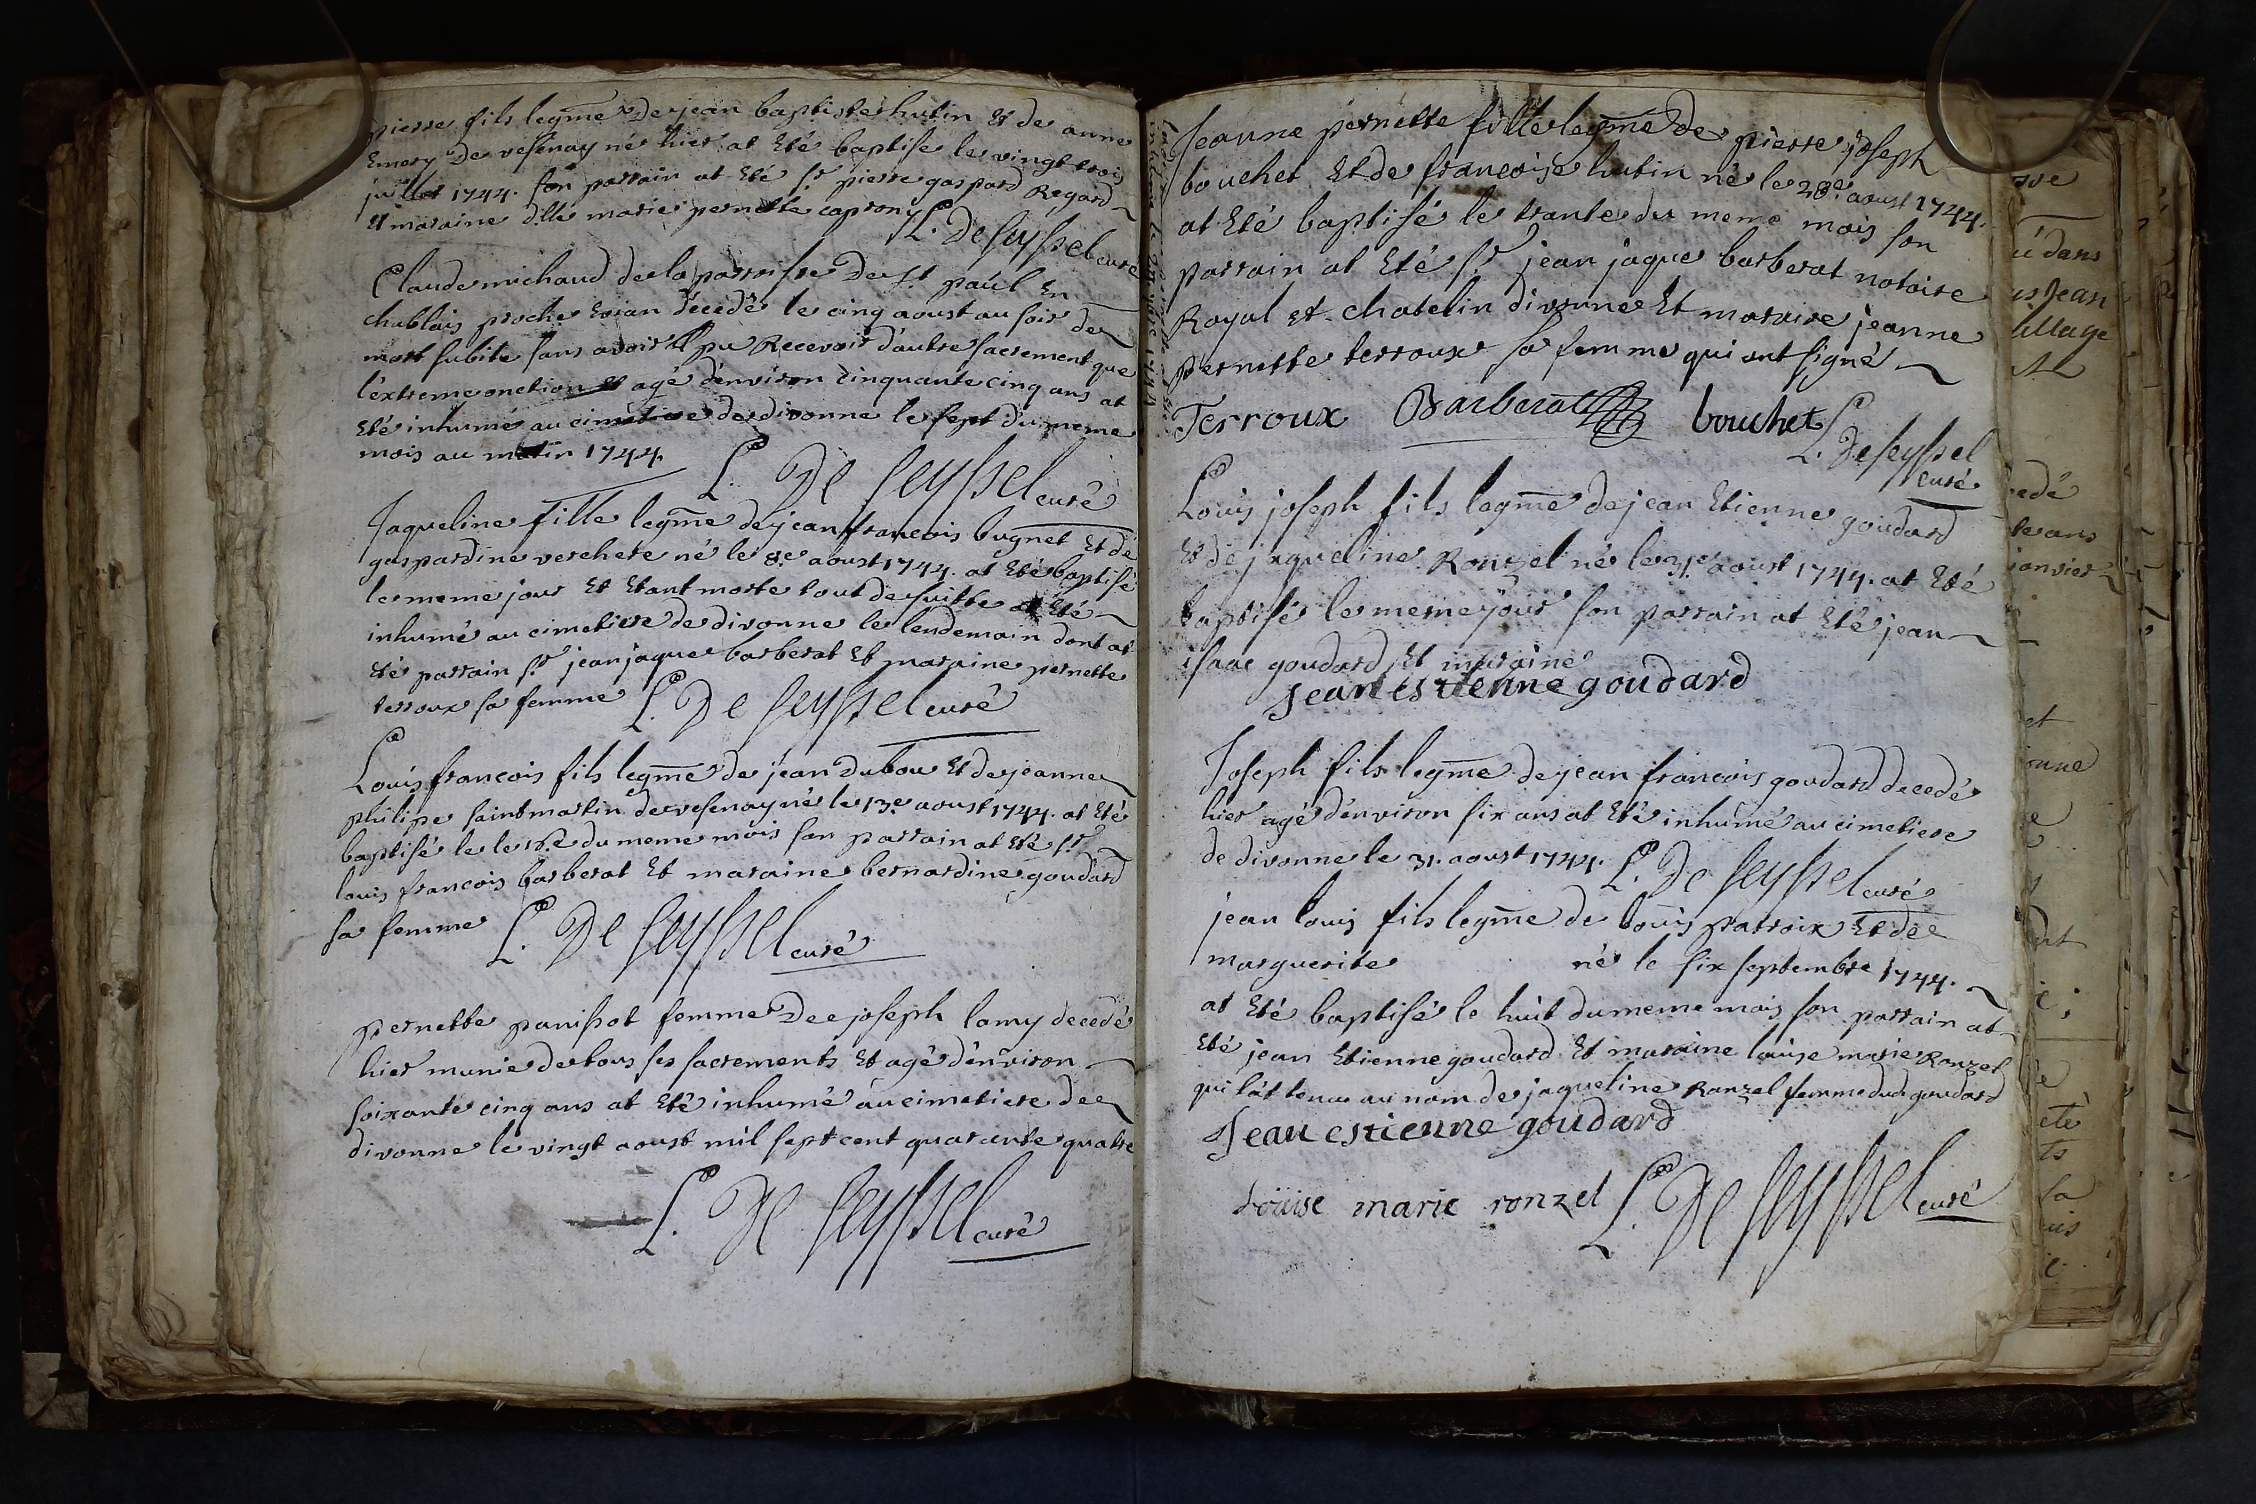 pierre fils legme de jean baptiste hutin Et de anne
Emery De vesenay né hier at Eté baptisé le vingt trois
juillet 1744. son parrain at Eté sr pierre gaspard Regard
et maraine dlle marie pernette caprony
L. De seyssel curé
Claude michaud de la parroisse De st paul En
chablais proche Evian décedé le cinq aoust au soir de
mort subite sans avoir pu Recevoir d'autre sacrement que
l'extreme onction et agé d'environ cinquante cinq ans at
Eté inhumé au cimetiere de divonne le sept du meme
mois au matin 1744.
L. De seyssel curé
Jaqueline fille legme de jean francois bugnet Et de
gaspardine verchere né le 8e aoust 1744. at Eté baptisé
le meme jour Et Etant morte tout de suitte at Eté
inhumé au cimetiere de divonne le lendemain dont at
Eté parrain sr jean jaque barberat Et maraine pernette
terroux sa femme
L. De seyssel curé
Louis francois fils legme de jean dubou Et de jeanne
philipe saint martin de vesenay né le 13e aoust 1744. at Eté
baptisé le le du meme mois son parrain at Eté sr
louis francois barberat Et maraine bernardine goudard
sa femme
L. De seyssel curé
pernette panissot femme De joseph lamy decedé
hier munie de tous ses sacrements Et agé d'environ
soixante cinq ans at Eté inhumé au cimetiere de
divonne le vingt aoust mil sept cent quarante quatre
L. De seyssel curé
Jeanne pernette fille legme De pierre joseph
bouchet Et de francoise hutin né le 28e aoust 1744.
at Eté baptisé le trante du meme mois son
parrain at Eté sr jean jaque barberat notaire
Royal et chatelin divonne Et maraine jeanne
pernette terroux sa femme qui ont signé
Terroux Barberat bouchet
L. De seyssel
curé
Louis joseph fils legme de jean Etienne goudard
Et de jaqueline Ronzel né le 31e aoust 1744. at Eté
baptisé le meme jour son parrain at Eté jean
isaac goudard Et maraine
jean estienne goudard
Joseph fils legme de jean francois goudard decedé
hier agé d'environ six ans at Eté inhumé au cimetiere
de divonne le 31. aoust 1744.
L. De seyssel curé
jean louis fils legme de louis parroix Et de
marguerite né le six septembre 1744.
at Eté baptisé le huit du meme mois son parrain at
Eté jean Etienne goudard Et maraine louise marie Ronzel
qui l'at tenu au nom de jaqueline Ronzel femme dud goudard
Jean estienne goudard
Louise marie ronzel
L. De seyssel curé